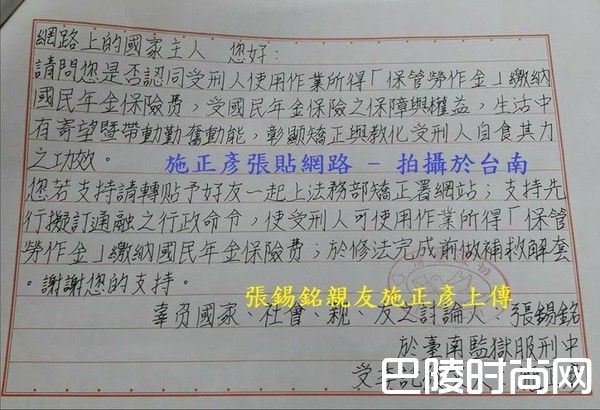 網路上的國家主人 您好:
請問您是否認同受刑人使用作業所得「保管勞作金」繳納
國民年金保險費,受國民年金保險之保障與權益,生活中
有寄望暨帶動勤奮動能,彰顯矯正與教化受刑人自食其力
之功效。
施正彥張貼網路 - 拍攝於台南
您若支持請轉貼予好友一起上法務部矯正署網站;支持先
行擬訂通融之行政命令,使受刑人可使用作業所得「保管
勞作金」繳納國民年金保險費;於修法完成前做補救解套
。謝謝您的支持。
張錫銘親友施正彥上傳
辜負國家、社會、親、友之討論人、張錫銘
於臺南監獄服刑中
受
巴陵时尚网